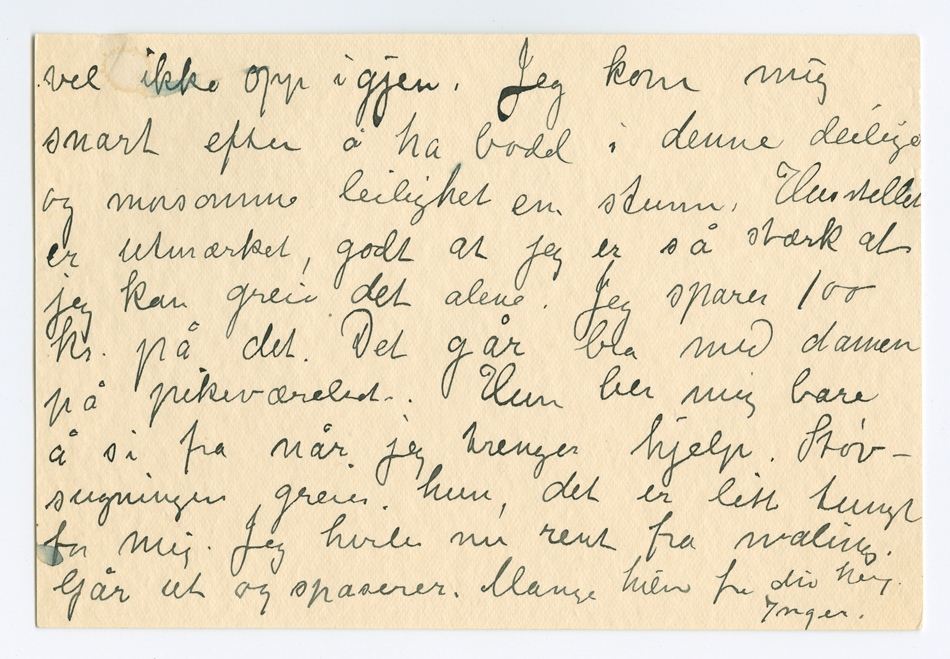 vel ikke opp igjen. Jeg kom mig
snart efter å ha bodd i denne deilige
og morsomme leilighet en stunn. Husstellet
er utmærket, godt at jeg er så stærk at
jeg kan greie det alene. Jeg sparer 100
kr. på det. Det går bra med damen
på pikeværelset. Hun ber mig bare
å si fra når jeg trenger hjelp. Støv-
sugningen greier hun, det er litt tungt
for mig. Jeg hviler nu rent fra maling.
Går ut og spaserer. Mange hilsn fra din
Inger.